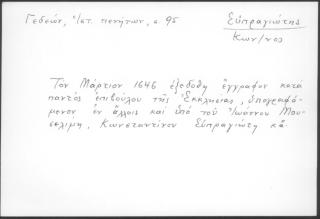 Γεδεών, Πατ. πινάκων, σ. 95
Εὐπραγιώτης
Κων/νος
Τον Μάρτιον 1646 ἐξεδόθη ἔγγραφον κατα
παντὸς ἐπιβούλου τῆς Ἐκκλησιας, ὑπογραφό-
μενον ἐν ἄλλοις και ὑπὸ τοῦ Ἰωάννου Μου-
σελίμη, Κωνσταντίνου Εὐπραγιώτη κἄ.